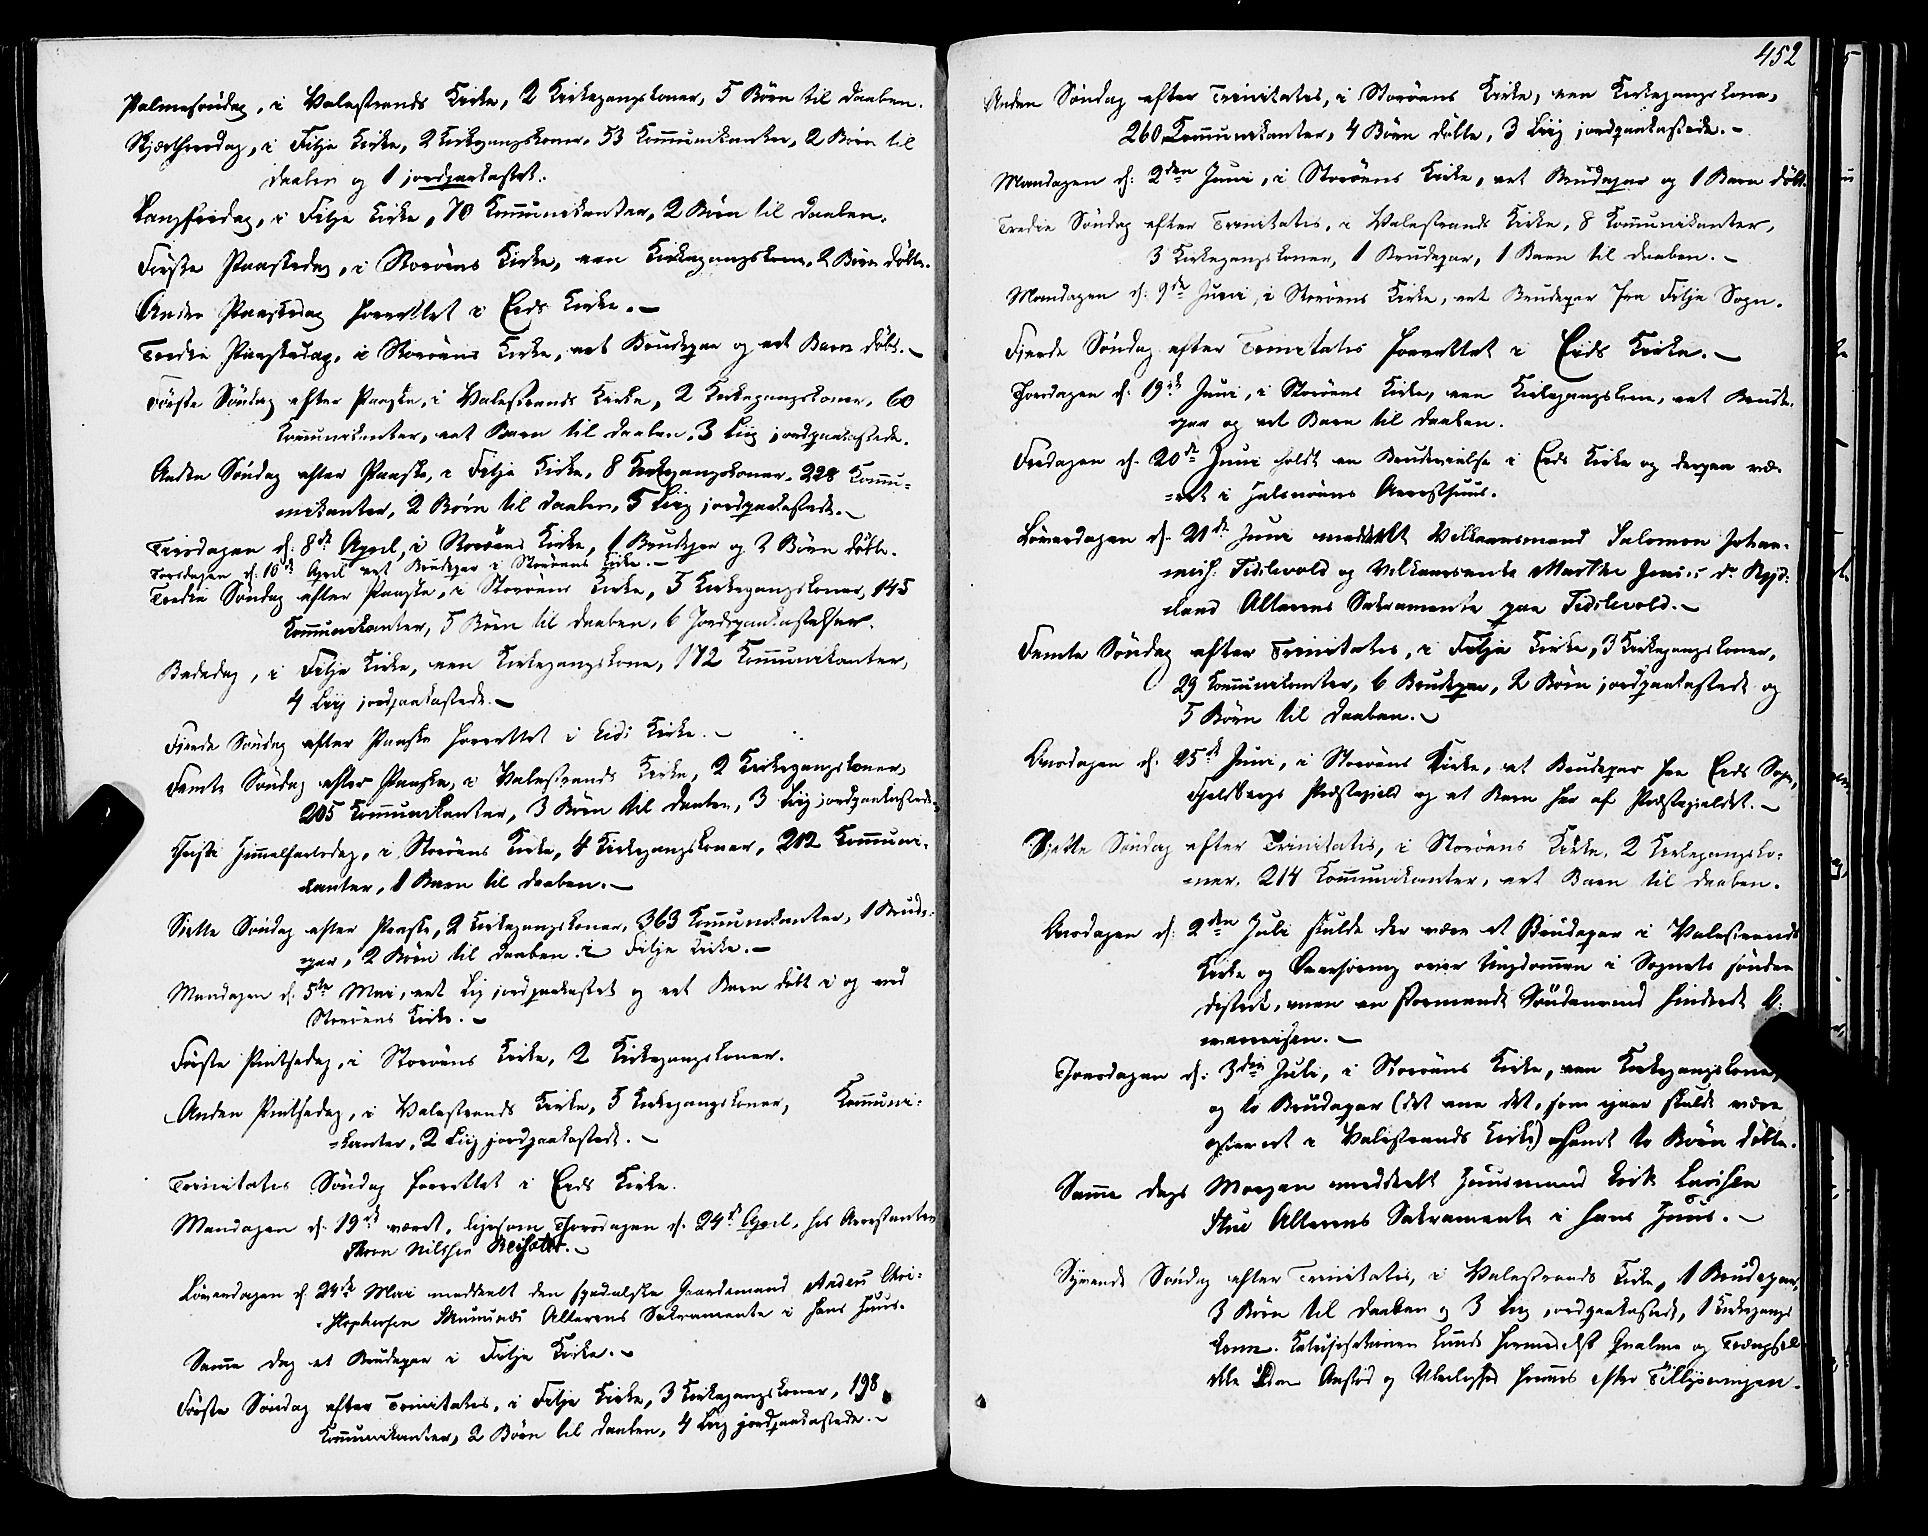 Palmesøndag, i Valestrands Kirke, 2 Kirkegangskoner, 5 Børn til Daaben.
Skjærthorsdag, i Fitje Kirke, 2 Kirkegangskoner, 53 Kom̄unikanter, 2 Børn til
Daaben og 1 jordpaakastet.
Langfredag, i Fitje Kirke, 70 Kom̄unikanter, 2 Børn til Daaben.
Første Paaskedag, i Storöens Kirke, een Kirkegangskone, 2 Børn døbte.
Anden Paaskedag forrettet i Eids Kirke.
Tredie Paaskedag, i Storöens Kirke, eet Brudepar og eet Barn døbt.
Første Søndag efter Paaske, i Valestrands Kirke, 2 Kirkegangskoner, 60
Kom̄unikanter, eet Barn til Daaben, 3 Liig jordpaakastede.
Anden Søndag efter Paaske, i Fitje Kirke, 8 Kirkegangskoner, 228 Kom̄u-
nikanter, 2 Børn til Daaben, 5 Liig jordpaakastede.
Tirsdagen d: 8de April, i Storöens Kirke, 1 Brudepar og 2 Børn døbte.
Torsdagen d. 10de April eet Brudepar i Storöens Kirke.
Tredie Søndag efter Paaske, i Storöens Kirke, 5 Kirkegangskoner, 145
Kom̄unikanter, 5 Børn til Daaben, 6 Jordpaakastelser.
Bededag, i Fitje Kirke, een Kirkegangskone, 172 Kom̄unikanter,
4 Liig jordpaakastede.
Fjerde Søndag efter Paaske forrettet i Eids Kirke.
Femte Søndag efter Paaske, i Valestrands Kirke, 2 Kirkegangskoner,
205 Kom̄unikanter, 3 Børn til Daaben, 3 Liig jordpaakastede.
Christi Him̄elfartsdag, i Storöens Kirke, 4 Kirkegangskoner, 212 Kom̄uni-
kanter, 1 Barn til Daaben.
Siette Søndag efter Paaske, 2 Kirkegangskoner, 363 Kom̄unikanter, 1 Brude-
par, 2 Børn til Daaben i Fitje Kirke.
Mandagen d. 5te Mai, eet Lig jordpaakastet og eet Barn døbt i og ved
Storöens Kirke.
Første Pintsedag, i Storöens Kirke, 2 Kirkegangskoner.
Anden Pintsedag, i Valestrands Kirke, 5 Kirkegangskoner, Kom̄uni-
kanter, 2 Liig jordpaakastede.
Trinitatis Søndag forrettet i Eids Kirke.
Mandagen d. 19de været, ligesom Thorsdagen d. 24de April, hos Arrestanten
Thore Nilssen
Löverdagen d. 24de Mai meddeelt den spedalske Gaardemand Anders Chri-
stophersen Altarens Sakramente i hans Huus.
Sam̄e Dag et Brudepar i Fitje Kirke.
Første Søndag efter Trinitatis, i Fitje Kirke, 3 Kirkegangskoner, 198
Kom̄unikanter, 2 Børn til Daaben, 4 Liig jordpaakastede.
452
Anden Søndag efter Trinitatis, i Storöens Kirke, een Kirkegangskone,
260 Kom̄unikanter, 4 Børn döbte, 3 Liig jordpaakastede.
Mandagen d: 2den Juni, i Storöens Kirke, eet Brudepar og 1 Barn döbt.
Tredie Søndag efter Trinitatis, i Valestrands Kirke, 8 Kom̄unikanter,
3 Kirkegangskoner, 1 Brudepar, 1 Barn til Daaben.
Mandagen d: 9de Juni, i Storöens Kirke, eet Brudepar fra Fitje Sogn.
Fjerde Søndag efter Trinitatis forrettet i Eids Kirke.
Thorsdagen d: 19de Juni, i Storöens Kirke, een Kirkegangskone, eet Brude-
par og eet Barn til Daaben.
Fredagen d. 20de Juni holdt en Brudevielse i Eids Kirke og derpaa væ-
ret i Halsnöens Arresthuus.
Löverdagen d. 21de Juni meddeelt Vilkaarsmand Salomon Johan-
nes: og Vilkaarsenke Marthe
Altarens Sakramente paa
Femte Søndag efter Trinitatis, i Fitje Kirke, 3 Kirkegangskoner,
29 Kom̄unikanter, 6 Brudepar, 2 Börn jordpaakastede og
5 Børn til Daaben.
Onsdagen d. 25de Juni, i Storöens Kirke, et Brudepar fra Eids Sogn,
Fjeldbergs Præstegield og et Barn her af Præstegieldet.
Sjette Søndag efter Trinitatis, i Storöens Kirke, 2 Kirkegangsko-
ner, 214 Kom̄unikanter, eet Barn til Daaben.
Onsdagen d: 2den Juli skulde der være et Brudepar i Valestrands
Kirke og over Ungdom̄en i Sognets søndre
District, men en Søndenvind hindrede
Thorsdagen d: 3die Juli, i Storöens Kirke, een Kirkegangskone,
og to Brudepar (det ene det, som igaar skulde være
i Valestrands Kirke) samt to Børn döbte.
Sam̄e Dags Morgen meddeelt Huusmand Erik Larssen
Altarens Sakramente i hans Huus.
Syvende Søndag efter Trinitatis, i Valestrands Kirke, 1 Brudepar,
3 Børn til Daaben og 3 Liig jordpaakastede, 1 Kirkegangs-
kone.
efter Tillysningen.